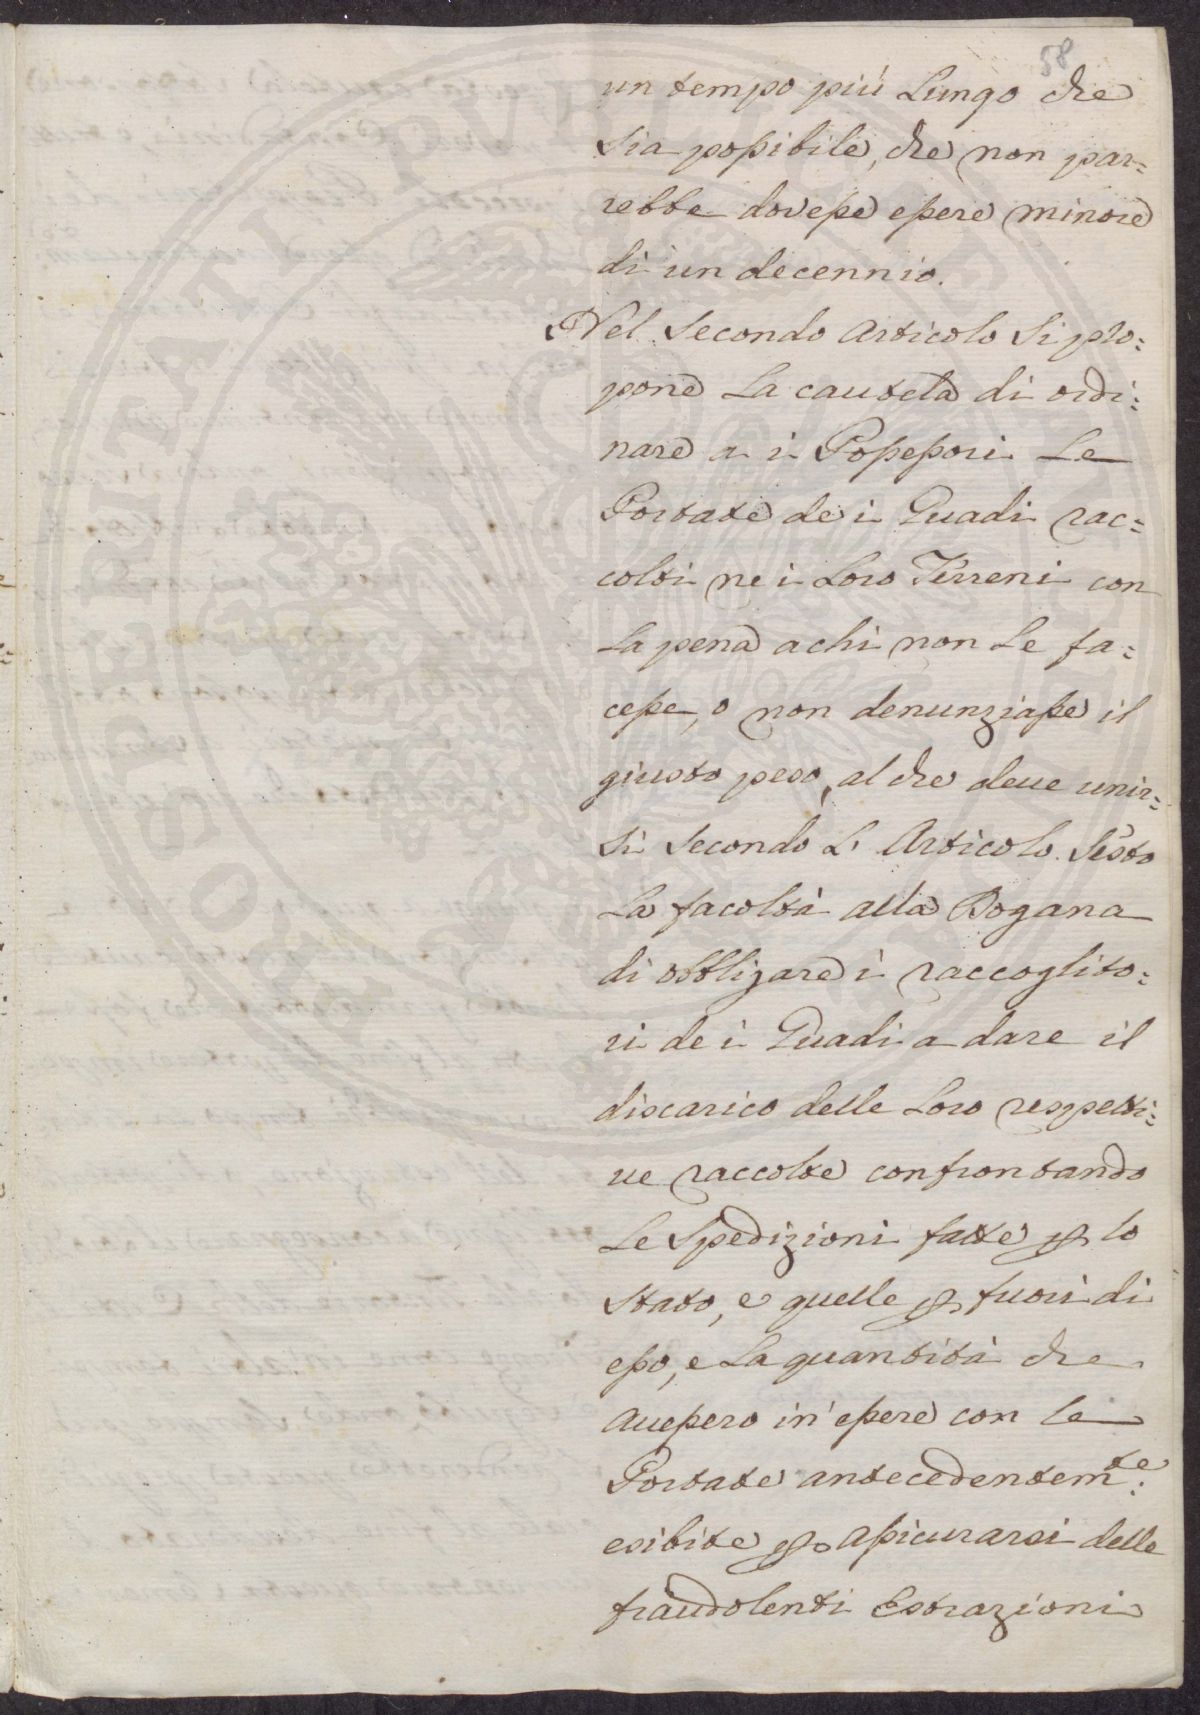 58
un tempo più Lungo che
Sia possibile, che non par=
rebbe dovesse essere minore
di un decennio.
Nel Secondo Articolo Si pro=
pone La cautela di ordi=
nare a i Possessori Le
Portate de i Guadi rac=
colti ne i Loro Terreni con
La pena a chi non Le fa=
cesse, o non denunziasse il
giusto peso, al che deue unir=
Si Secondo L'Articolo Sesto
La facoltà alla Dogana
di obbligare i raccoglito=
ri de i Guadi a dare il
discarico delle Loro respetti=
ue raccolte confrontando
Le Spedizioni fatte p lo
Stato, e quelle p fuori di
esso, e La quantità che
auessero in essere con le
Portate antecedentemte:
esibite p assicurarsi delle
fraudolenti Estrazioni